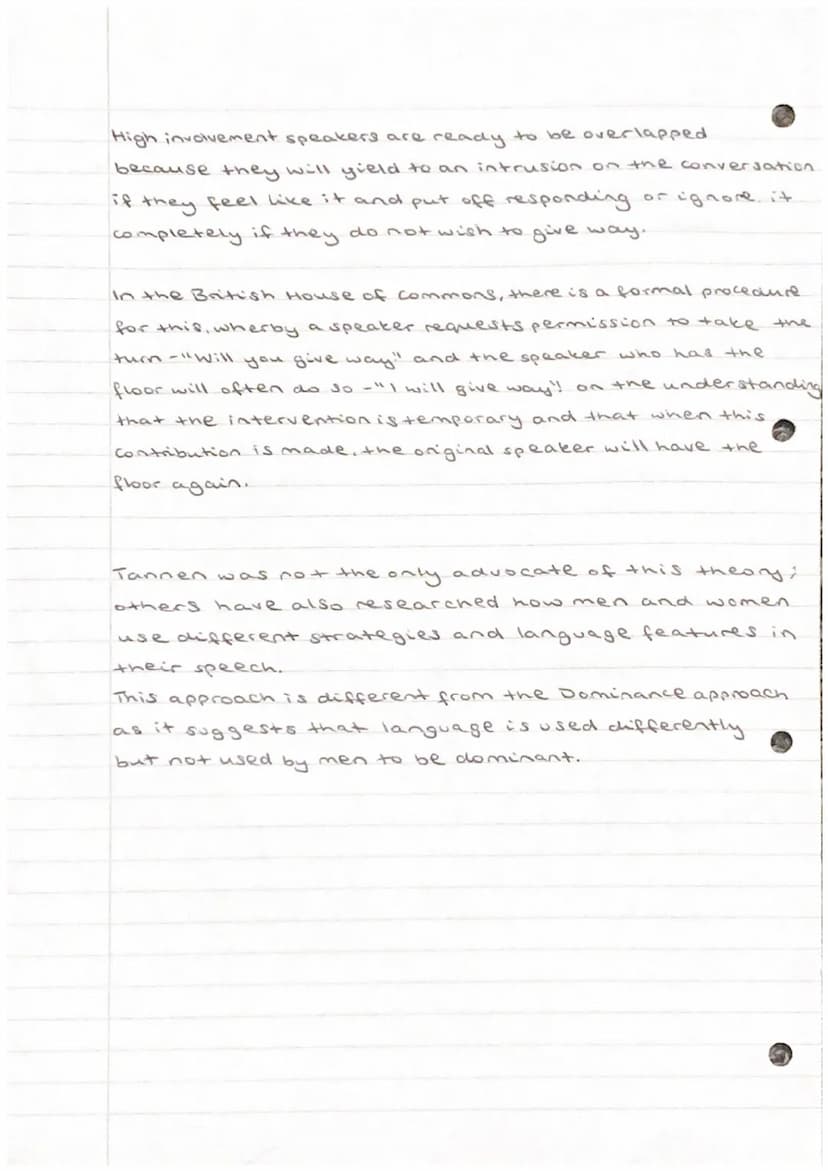 High involvement speakers are ready to be overlapped
because they will yield to an intrusion on the conversation
if they feel like it and put off responding or ignore it
completely if they do not wish to give way.
In the British House of Commons, there is a formal procedure
for this, wherby a speaker requests permission to take the
turn - "Will you give way" and the speaker who has the
floor will often do so - "I will give way". on the understanding
that the intervention is temporary and that when this
contribution is made, the original speaker will have the
floor again.
Tannen was not the only advocate of this theory;
others have also researched how men and women
use different strategies and language features in
their speech.
This approach is different from the Dominance approach
as it suggests that language is used differently
but not used by men to be dominant.